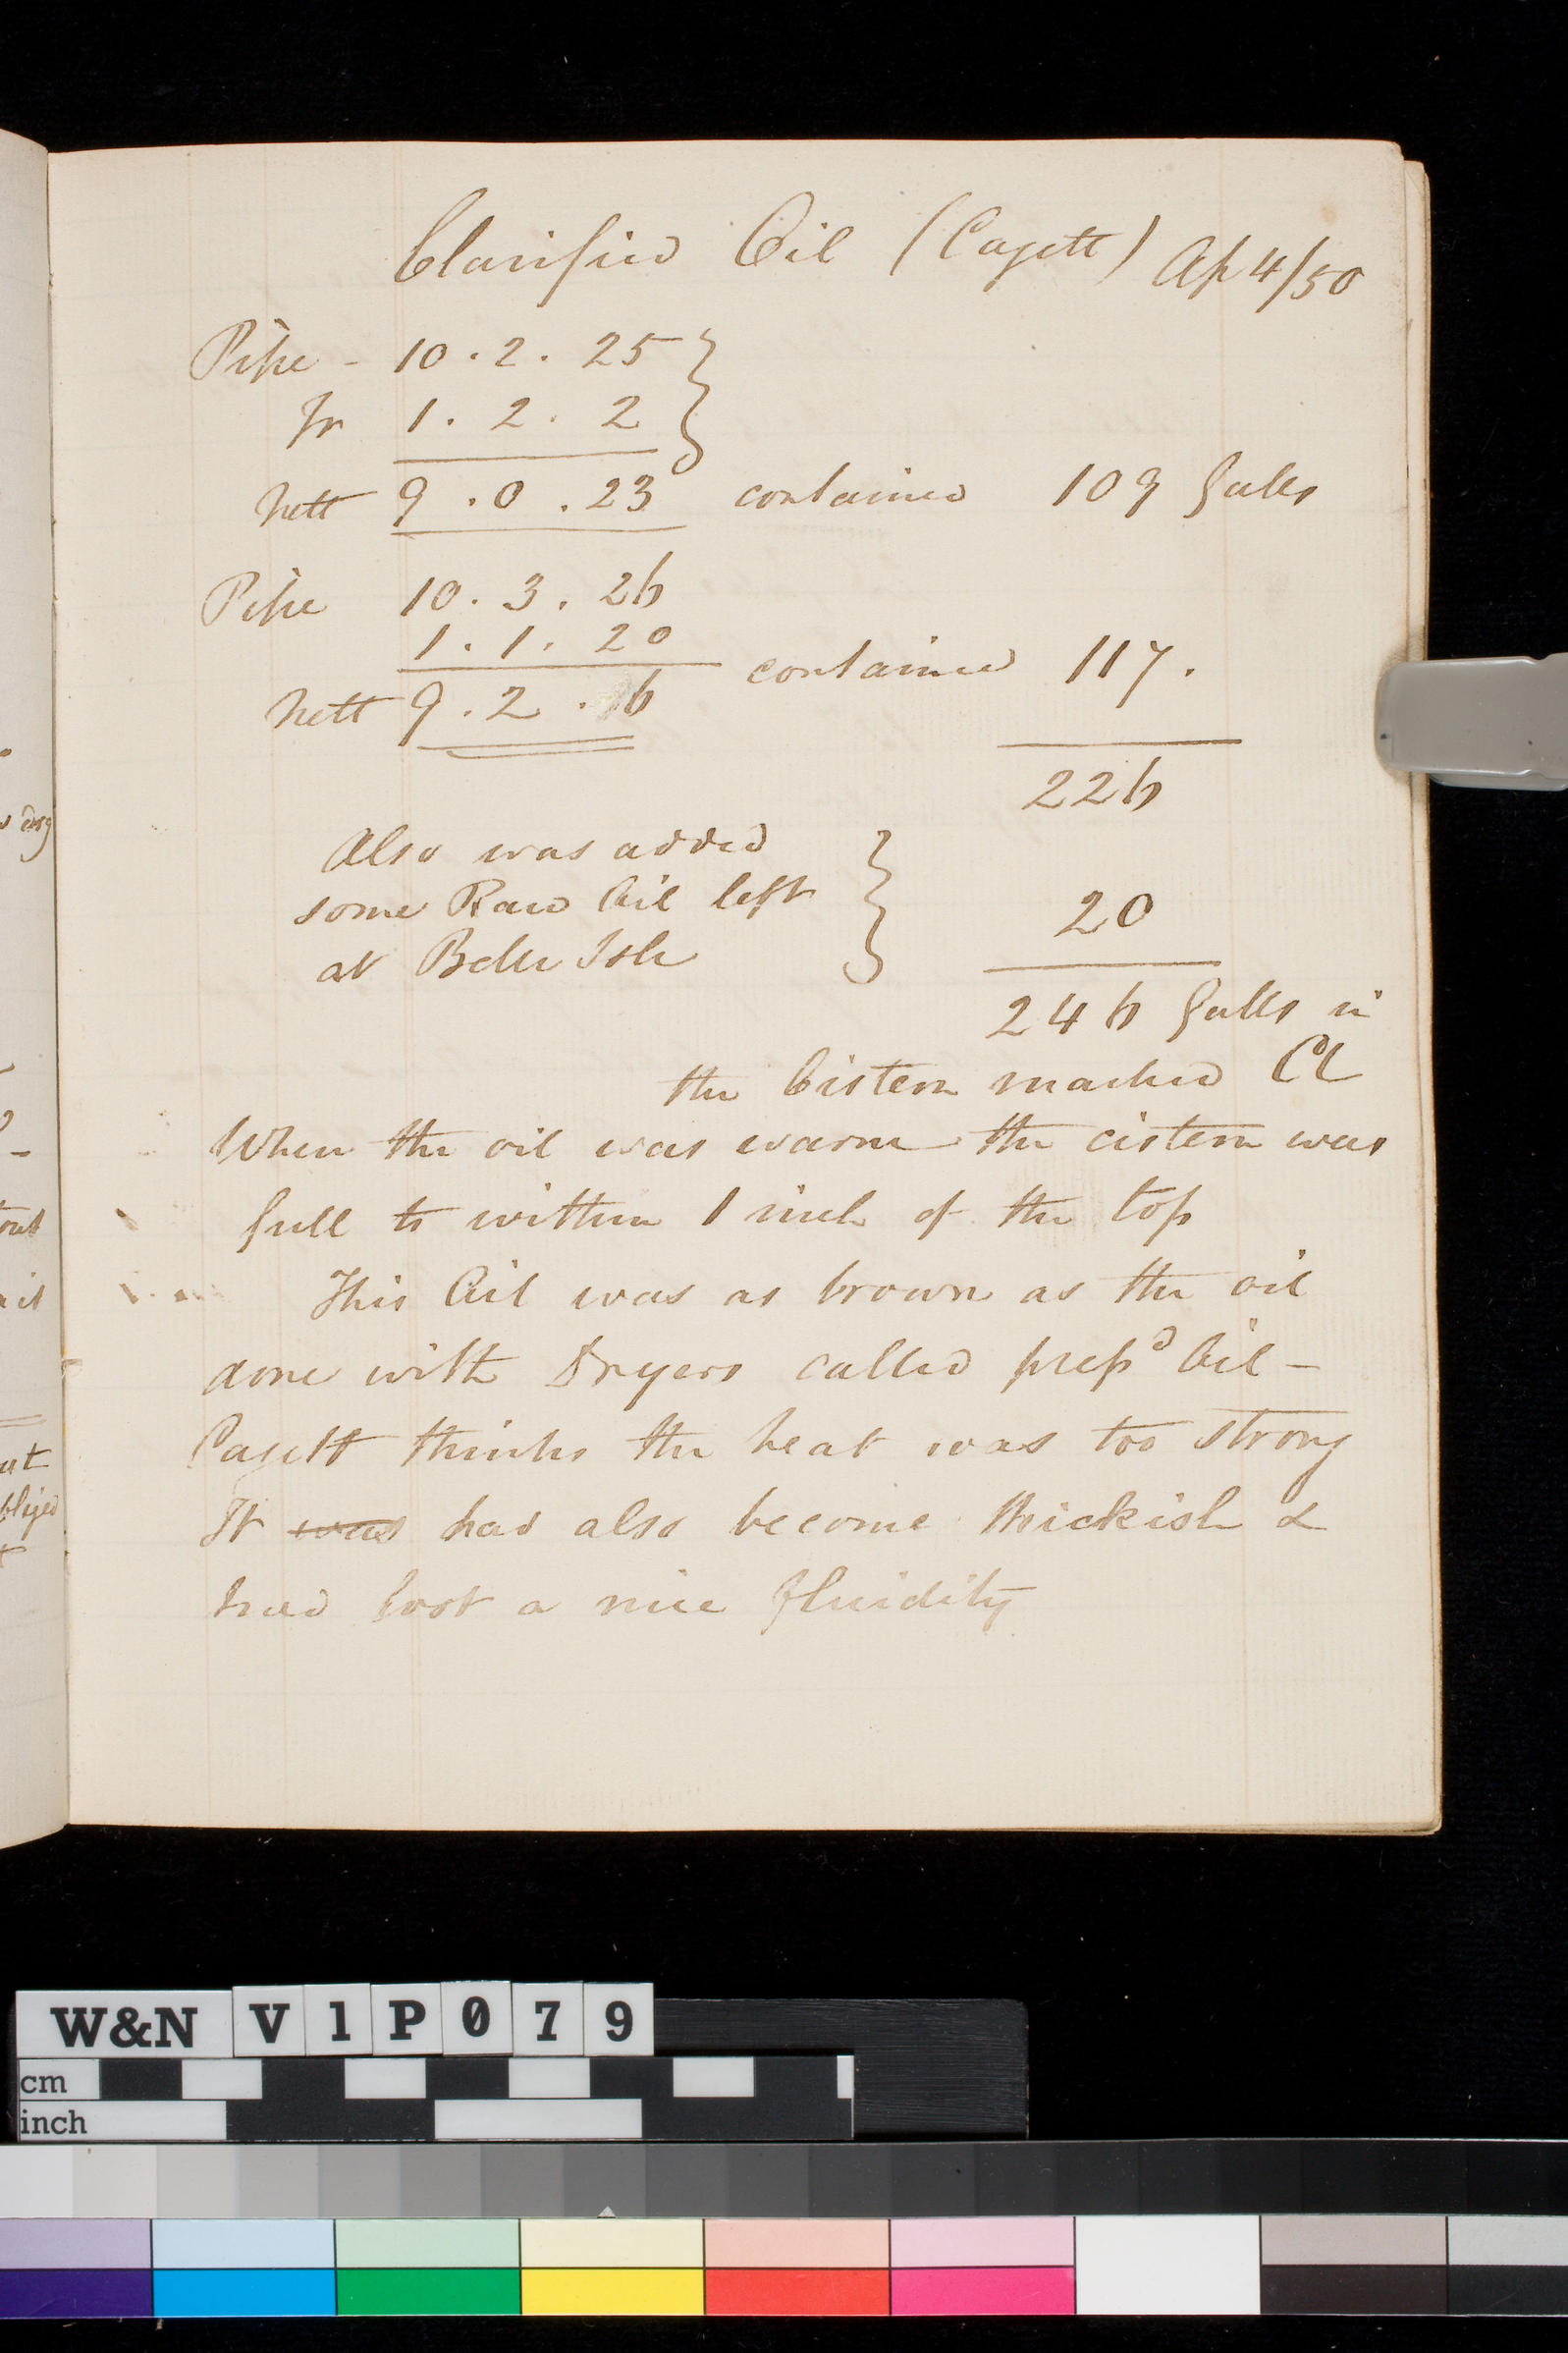 Clarified Oil (Cagett) Ap 4/50
Pipe - 10.2.25
Tr 1.2.2
Nett 9.0.23 contained 109 Galls
Pipe 10.3.26
1.1.20
Nett 9.2.6 contained 117.
226
Also was added
some Raw Oil left
at Belle Isle
20
246 Galls in
the Cistern marked Cl
When the oil was warm the cistern was
full to within 1 inch of the top
This Oil was as brown as the oil
done with Dryers called prepd Oil -
Cagett thinks the heat was too strong
It was had also become thickish &
had lost a nice fluidity
W&N V1P079
cm
inch